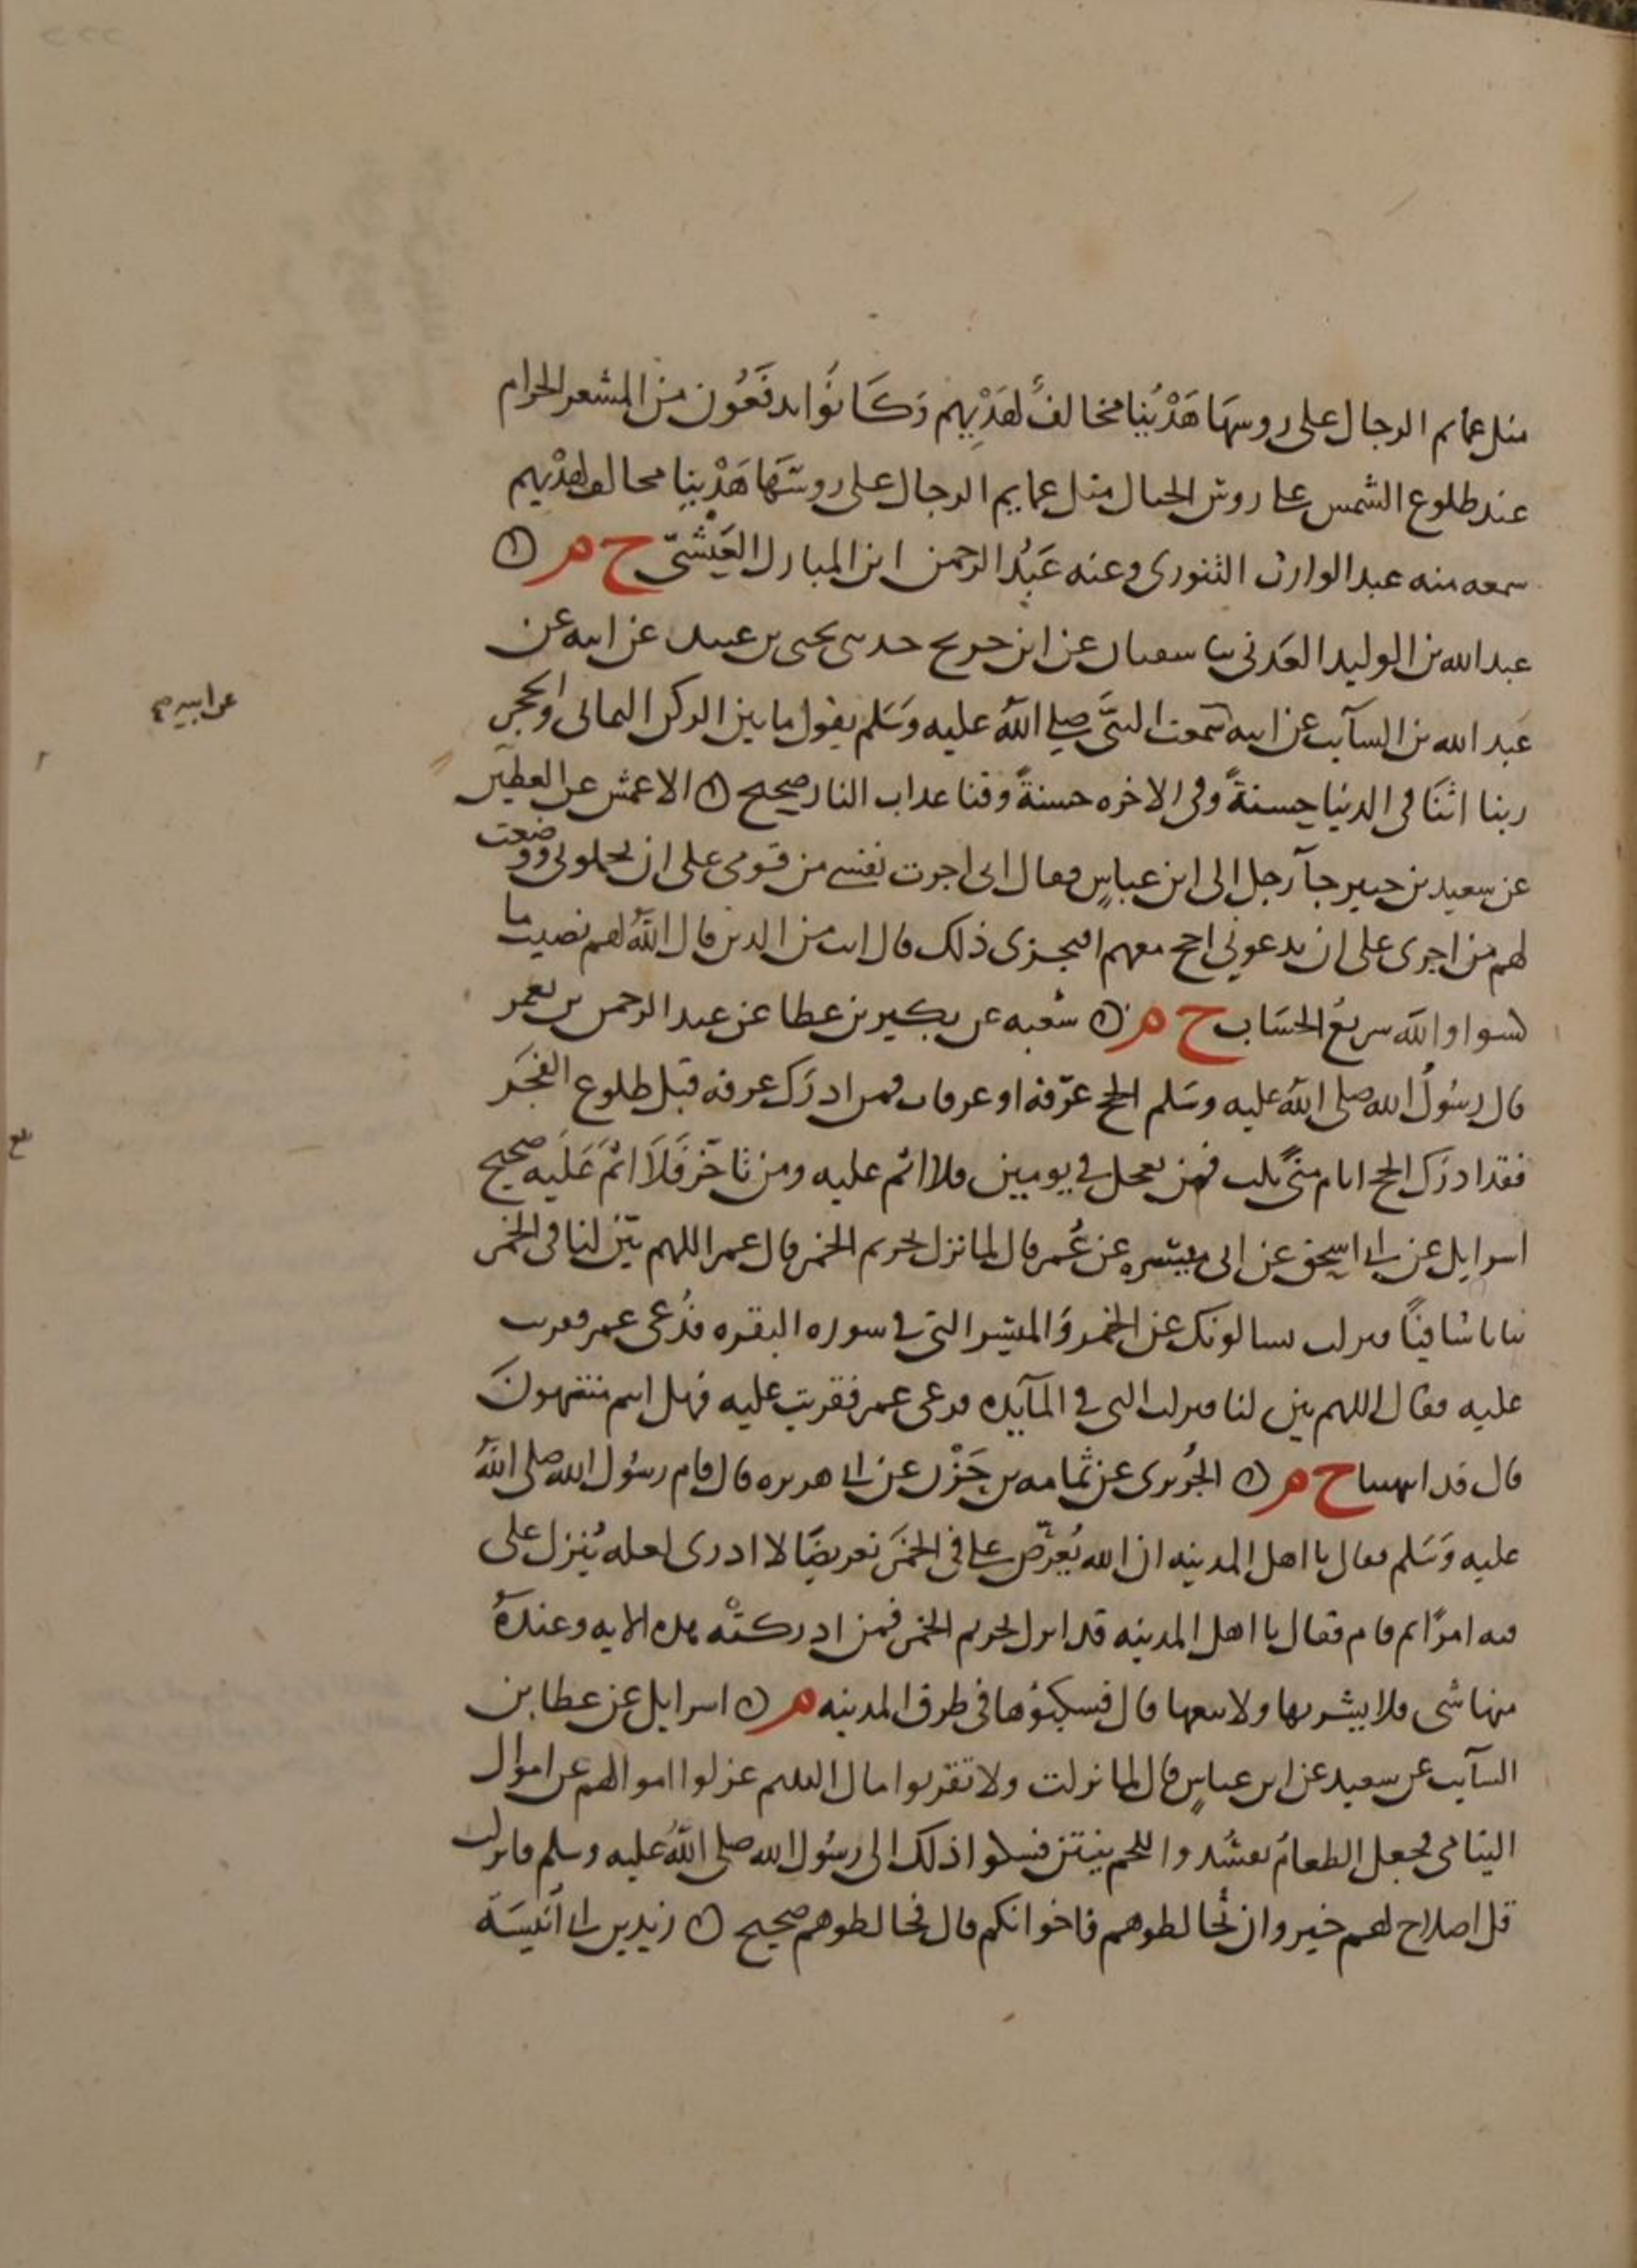 مثل عمايم الرجال على روسها هَدْيُنا مخالفٌ لهَدْيِهم وَكَانُوا يدفَعُون من المشعر الحرام
عند طلوع الشمس على روس الجبال مثل عمايم الرجال على روسَهَا هَدْيُنا مخالف لهدْيهم
سمعه منه عبد الوارث التنورى وعنه عَبْدُ الرحمن ابن المبارك العَيْشىّ خ م ۞
عبد الله بن الوليد العَدنى نا سفيان عن ابن جريج حدثنى يحيى بن عبيد عن ابيه عن
عبد الله بن السآيب عن ابيه سمعت النبىَّ صلى اللهُ عليه وَسَلم يقول ما بين الركن اليمانى والحجر
ربنا اتنَا فى الدنيا حسنةً وفى الاخره حسنةً وقنا عذاب النار صحيح ۞ الاعمش عن البطين
عن سعيد بن جبير جآ رجل الى ابن عباسٍ فقال انى اجرت نفسى من قومى على ان يحملونى ووضعت
لهم من اجرى على ان يدعونى احج معهم افيجزى ذلك قال انت من الذين قال اللهُ لهم نصيب مما
كسبوا والله سريعُ الحسَاب خ م ۞ شعبه عن بكير بن عطا عن عبد الرحمن بن يعمر
قال رسُولُ الله صلى اللهُ عليه وسَلم الحج عرَفه او عرفات فمن ادرَك عرفه قبل طلوع الفجَر
فقد ادرَك الحج ايام منىً ثلث فمن تعجل فى يومين فلا اثم عليه ومن تاخَّر فَلَا اثمَ عَلَيه صحيح
اسرايل عن ابى اسحق عن ابى ميسره عن عُمر قال لما نزل تحريم الخمر قال عمر اللهم بيّن لنا فى الخمر
بيانا شافيًا فنزلت يسالونك عن الخمر وَالميسر التى فى سوره البقره فدُعى عمر فقرت
عليه فقال اللهم بين لنا فنزلت التى فى المآيده فدعى عمر فقريت عليه فهل انتم منتهونَ
قال قد انتهينا خ م ۞ الجُريرى عن ثمامه بن حَزْن عن ابى هريره قال قام رسُول الله صلى اللهُ
عليه وَسَلم فقال يا اهل المدينه ان الله يُعَرّض على فى الخمَر تعريضًا لا ادرى لعله يُنزل على
فيه امرًا ثم قام فقال يا اهل المدينه قد انزل تحريم الخمر فمن ادركتْه هذه الايه وعندهُ
منها شى فلا يشربها ولا يبيعها قال فسكبُوها فى طرق المدينه م ۞ اسرايل عن عطا بن
السآيب عن سعيد عن ابن عباسٍ قال لما نزلت ولا تقربوا مال اليتيم عزلوا اموالهم عن اموال
اليتامى فجعل الطعامُ يفسُد واللحم ينتن فشكوا ذلك الى رسُول الله صلى اللهُ عليه وسلم فانزلت
قل اصلاح لهم خير وان تُخالطوهم فاخوانكم قال فخالطوهم صحيح ۞ زيد بن ابى انَيسَة
عن ابيه صح